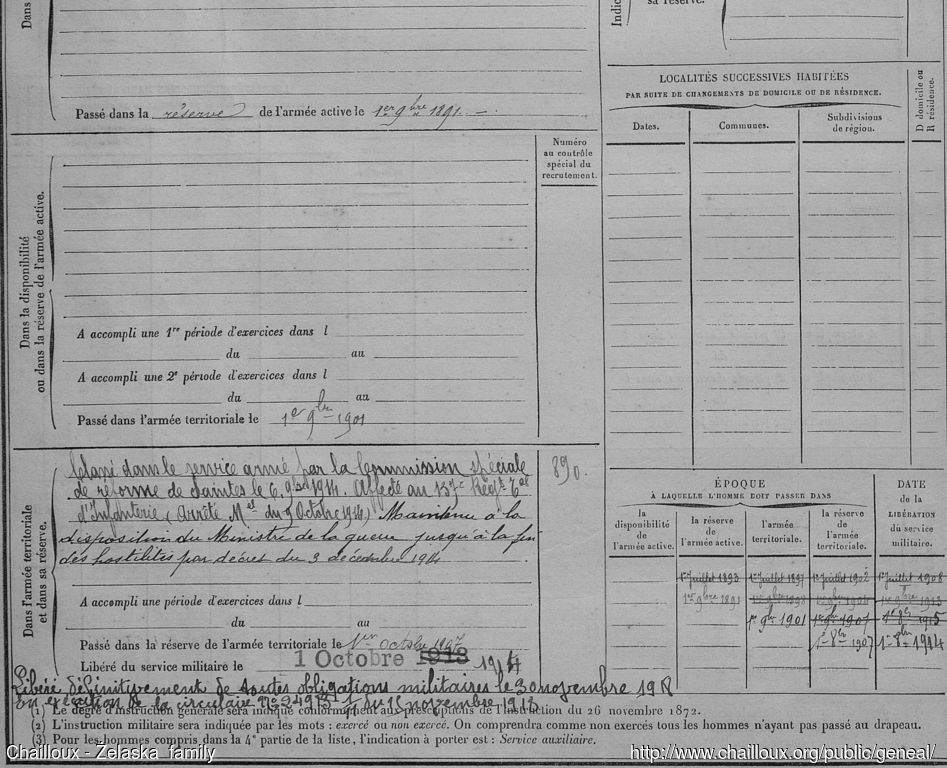 Dans
Indic
sa réserve.
Passé dans la réserve de l'armée active le 1er 9bre 1891.
LOCALITÉS SUCCESSIVES HABITÉES
PAR SUITE DE CHANGEMENTS DE DOMICILE OU DE RÉSIDENCE.
D domicile ou
R résidence.
Dates.
Communes.
Subdivisions
de région.
Numéro
au contrôle
spécial du
recrutement.
Dans la disponibilité
ou dans la réserve de l'armée active.
A accompli une 1re période d'exercices dans l
du au
A accompli une 2e période d'exercices dans l
du au
Passé dans l'armée territoriale le 1er 9bre 1901
Dans l'armée territoriale
et dans sa réserve.
Classé dans le service armé par la Commission spéciale
de réforme de Saintes le 6 9bre 1914. Affecté au 137e Régt Tal
d'Infanterie (Arrêté Mel du 9 Octobre 1914) Maintenu à la
disposition du Ministre de la guerre jusqu'à la fin
des hostilités par décret du 3 décembre 1914
890.
A accompli une période d'exercices dans l
du au
Passé dans la réserve de l'armée territoriale le 1er Octobre 1907
Libéré du service militaire le 1 Octobre 1913 1914
ÉPOQUE
À LAQUELLE L'HOMME DOIT PASSER DANS
DATE
de la
LIBÉRATION
du service
militaire.
la
disponibilité
de
l'armée active.
la réserve
de
l'armée active.
l'armée
territoriale.
la réserve
de
l'armée
territoriale.
1er Juillet 1893 1er Juillet 1897 1er Juillet 1902 1er Juillet 1908
1er 9bre 1891 1er 9bre 1898 1er 9bre 1904 1er 9bre 1913
1er 9bre 1901 1er 9bre 1907 1er 8bre 1915
1er 8bre 1907 1er 8bre 1914
Libéré définitivement de toutes obligations militaires le 30 novembre 1918
En exécution de la circulaire du 16 novembre 1918
(1) Le degré d'instruction générale sera indiqué conformément aux prescriptions de l'instruction du 26 novembre 1872.
(2) L'instruction militaire sera indiquée par les mots : exercé ou non exercé. On comprendra comme non exercés tous les hommes n'ayant pas passé au drapeau.
(3) Pour les hommes compris dans la 4e partie de la liste, l'indication à porter est : Service auxiliaire.
Chailloux - Zelaska family
http://www.chailloux.org/public/geneal/